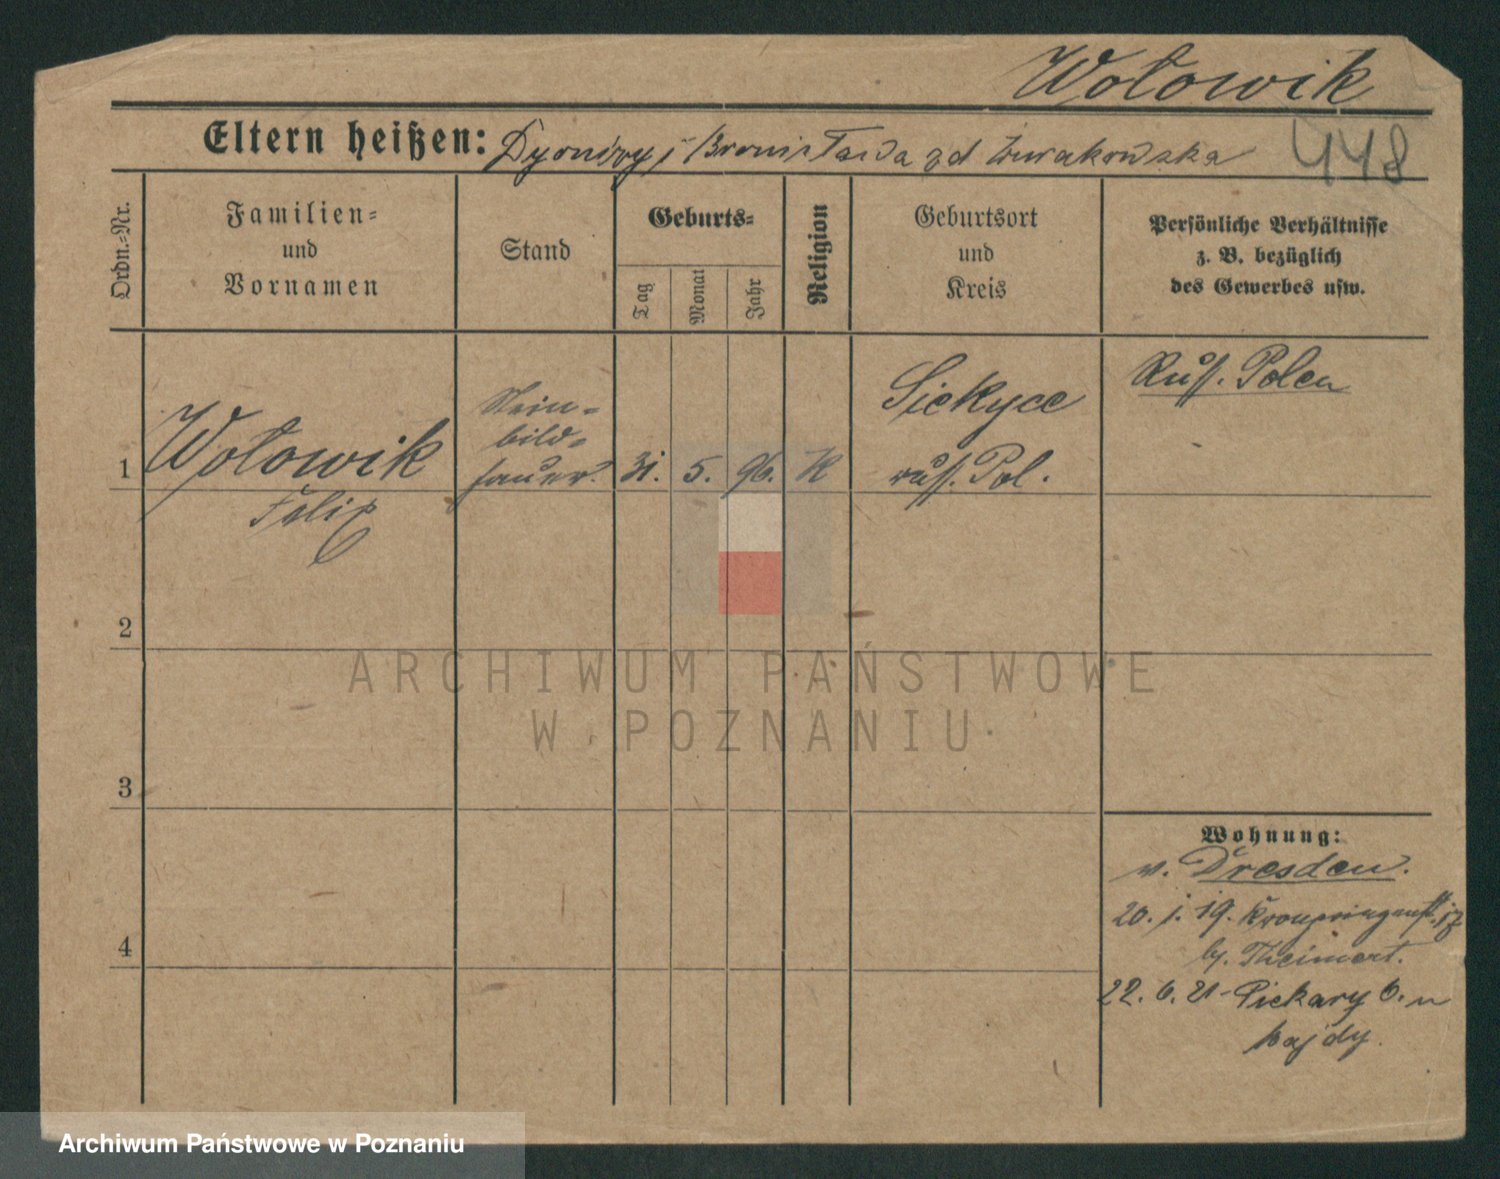 Wołowik
Eltern heißen: Dyonizy i Bronisława zd Żurakowska
448
Ordn.-Nr.
Familien-
und
Vornamen
Stand
Geburts-
Tag
Monat
Jahr
Religion
Geburtsort
und
Kreis
Persönliche Verhältnisse
z. B. bezüglich
des Gewerbes usw.
1
Wołowik
Felix
Stein-
bild-
hauer.
31. 5. 96. K
Siekyce
russ. Pol.
Russ. Polen
2
3
4
Wohnung:
v. Dresden.
20. 1. 19. Kronprinzenstr.
b. Theinert.
22. 6. 21 - Piekary 6. u
Hajdy.
ARCHIWUM PAŃSTWOWE
W POZNANIU
Archiwum Państwowe w Poznaniu